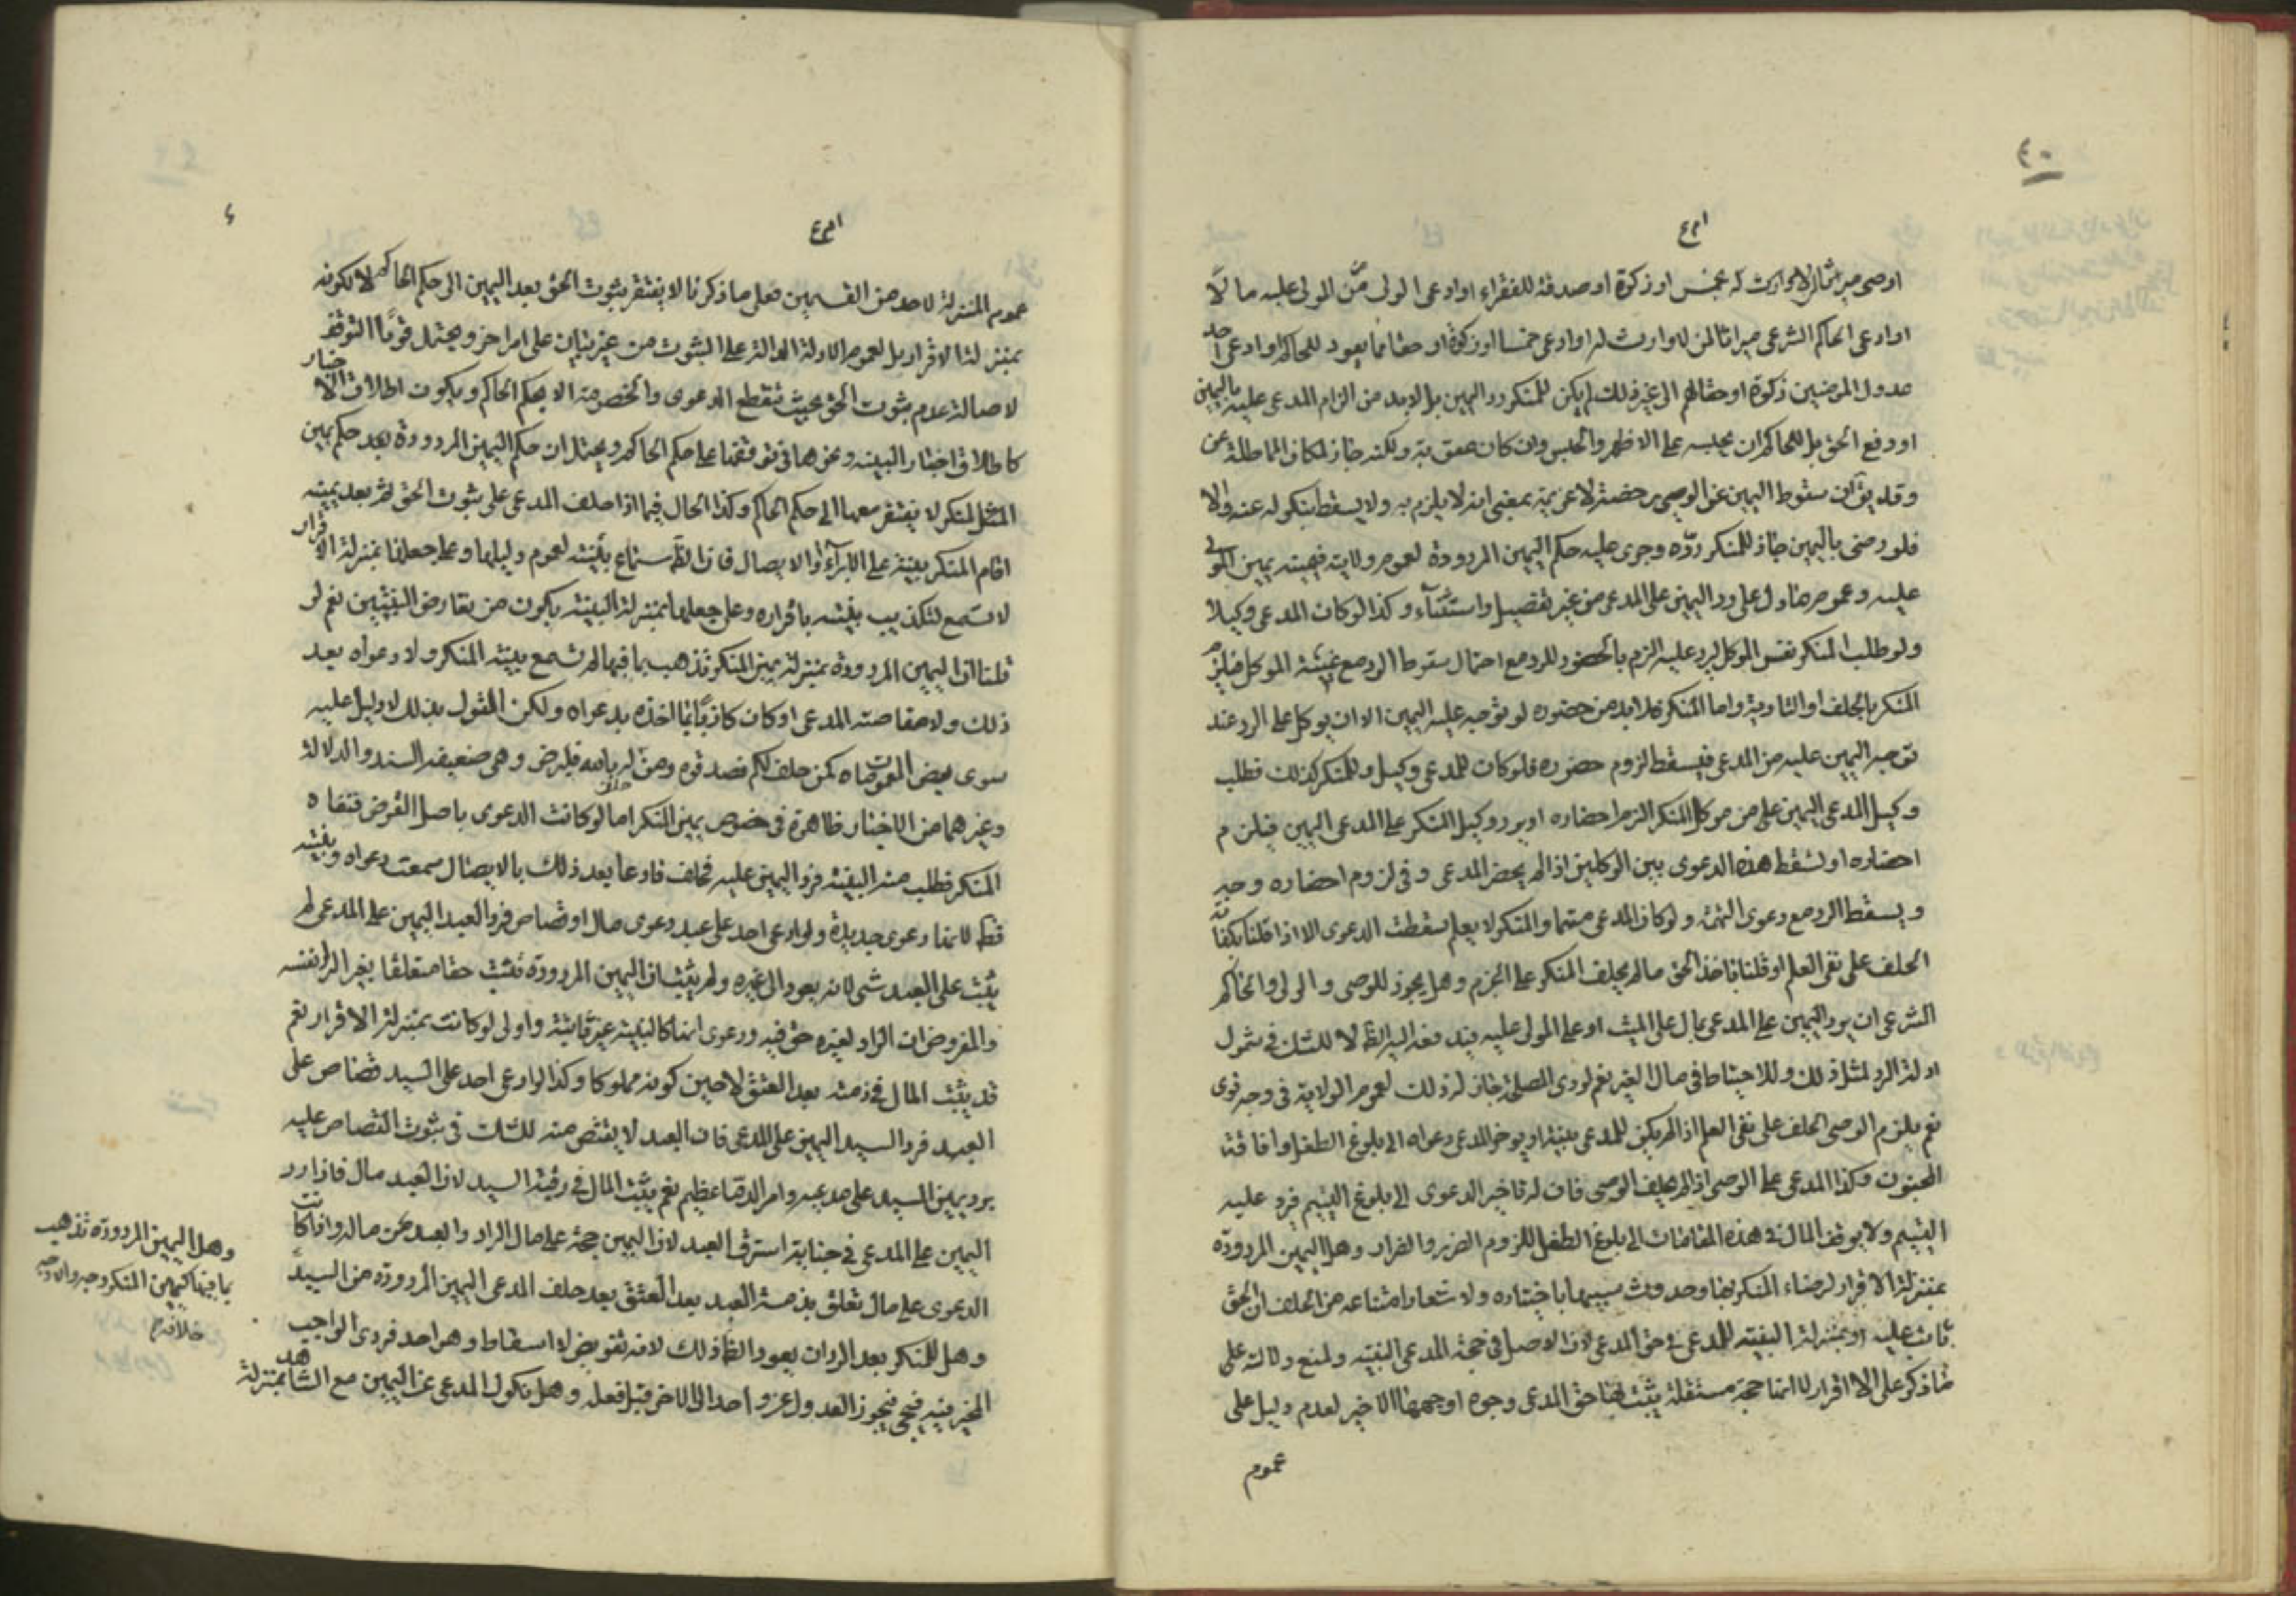 ٤٠
اوصى ميراثا لمن لا وارث له او خمس او زكوة او صدقة للفقراء او ادعى الولى من المولى عليه مالا
او ادعى الحاكم الشرعى ميراثا لمن لا وارث له او ادعى خمسا او زكوة او حقا مما يعود للحاكم او ادعى احد
عدول المؤمنين زكوة او حقا لهم الى غير ذلك لم يكن للمنكر رد اليمين بل لابد من الزام المدعى عليه باليمين
او دفع الحق بل للحاكم ان يحبسه على الاظهر والحبس وان كان عقوبة ولكنه جاز لمكان المماطلة عن
وقد يق ان سقوط اليمين عن الوصى رخصة لا عزيمة بمعنى انه لا يلزم به ولا يسقط بنكوله عنه والا
فلو رضى باليمين جاز للمنكر رده وجرى عليه حكم اليمين المردودة لعموم ولايته فيمينه يمين المولى
عليه وعموم ما دل على رد اليمين على المدعى من غير تفصيل واستثناء وكذا لو كان المدعى وكيلا
ولو طلب المنكر نفس الموكل ليرد عليه الزم بالحضور للرد مع احتمال سقوط الرد مع غيبة الموكل فيلزم
المنكر بالحلف او التادية واما المنكر فلا بد من حضوره لو توجه عليه اليمين الا ان يوكل على الرد عند
توجه اليمين عليه من المدعى فيسقط لزوم حضوره فلو كان للمدعى وكيل وللمنكر كذلك فطلب
وكيل المدعى اليمين على من موكل المنكر الزم احضاره او يرد وكيل المنكر على المدعى اليمين فيلزم
احضاره او تسقط هذه الدعوى بين الوكيلين اذا لم يحضر المدعى وفى لزوم احضاره وجه
ويسقط الرد مع دعوى التهمة ولو كان المدعى متهما والمنكر لا يعلم سقطت الدعوى الا اذا قلنا بكفاية
الحلف على نفى العلم او قلنا باخذ الحق ما لم يحلف المنكر على الجزم وهل يجوز للوصى والولى والحاكم
الشرعى ان يرد اليمين على المدعى بمال على الميت او على المولى عليه فيدفعه اليه الظ لا للشك فى شمول
ادلة الرد لمثل ذلك وللاحتياط فى مال الغير نعم لو رأى المصلحة جاز له ذلك لعموم الولاية فى وجه قوى
نعم يلزم الوصى الحلف على نفى العلم اذا لم يكن للمدعى بينة او يؤخر المدعى دعواه الى بلوغ الطفل وافاقة
المجنون وكذا المدعى على الوصى اذا لم يحلف الوصى فان له تاخير الدعوى الى بلوغ اليتيم فيرد عليه
اليتيم ولا يوقف المال فى هذه المقامات الى بلوغ الطفل للزوم الضرر والضرار وهل اليمين المردودة
بمنزلة الاقرار لرضاء المنكر بها وحدوث سببها باختياره ولاشعار امتناعه من الحلف ان الحق
ثابت عليه او بمنزلة البينة للمدعى فى حق المدعى لان الاصل فى حجة المدعى البينة ولمنع دلالة على
ما ذكر على الاقرار او انها حجة مستقلة يثبت بها حق المدعى وجوه اوجهها الاخير لعدم دليل على
عموم
عموم المنزلة لاحد من القسمين فعلى ما ذكرنا لا يفتقر ثبوت الحق بعد اليمين الى حكم الحاكم لا لكونه
بمنزلة الاقرار بل لعموم الادلة الدالة على الثبوت من غير بيان على امر اخر ويحتمل قويا التوقف
لاصالة عدم ثبوت الحق بحيث تنقطع الدعوى والخصومة الا بحكم الحاكم ويكون اطلاق الاخبار
كاطلاق اخبار البينة ونحوها فى توقفها على حكم الحاكم ويحتمل ان حكم اليمين المردودة بعد حكم يمين
المنكر لا يفتقر معها الى حكم الحاكم وكذا الحال فيما اذا حلف المدعى على ثبوت الحق ثم بعد يمينه
اقام المنكر بينة على الابراء او الايصال فان الظ سماع بينته لعموم دليلها وعلى جعلها بمنزلة الاقرار
لا تسمع لتكذيب بينته باقراره وعلى جعلها بمنزلة البينة يكون من تعارض البينتين نعم لو
قلنا ان اليمين المردودة بمنزلة يمين المنكر تذهب بما فيها لم تسمع بينة المنكر ولا دعواه بعد
ذلك ولا مقاصته المدعى او كان كاذبا بما اخذه بدعواه ولكن القول بذلك لا دليل عليه
سوى بعض العمومات كمن حلف لكم فصدقوه ومن حلف له بالله فليرض وهى ضعيفة السند والدلالة
وغيرهما من الاخبار ظاهرة فى خصوص يمين المنكر اما لو كانت الدعوى باصل القرض فنفاه
المنكر فطلب منه البينة فرد اليمين عليه فحلف فادعى بعد ذلك بالايصال سمعت دعواه وبينته
قطعا لانها دعوى جديدة ولو ادعى احد على عبد دعوى مال او قصاص فرد العبد اليمين على المدعى لم
يثبت على العبد شى لانه يعود الى غيره ولم يثبت ان اليمين المردودة تثبت حقا متعلقا بغير الراد نفسه
والمفروض ان الراد لغيره حق فيه ودعوى انها كالبينة غير ثابتة واولى لو كانت بمنزلة الاقرار نعم
قد يثبت المال فى ذمته بعد العتق لا حين كونه مملوكا وكذا لو ادعى احد على السيد قصاص على
العبد فرد السيد اليمين على المدعى فان العبد لا يقتص منه للشك فى ثبوت القصاص عليه
برد يمين السيد على مدعيه وامر الدماء عظيم نعم يثبت المال فى رقبة السيد لان العبد مال فاذا رد
اليمين على المدعى فى جناية استرق العبد لان اليمين حجة على مال الراد والعبد من ماله وان كانت
الدعوى على مال تعلق بذمة العبد بعد العتق بعد حلف المدعى اليمين المردودة من السيد
وهل للمنكر بعد الرد ان يعود الظ ذلك لانه تفويض لا اسقاط وهو احد فردى الواجب
المخير فيه فيجوز العدول عن واحد الى الاخر قبل فعله وهل نكول المدعى عن اليمين مع الشاهد بمنزلة
وهل اليمين المردودة تذهب
بما فيها كيمين المنكر وجه والاوجه
خلافه